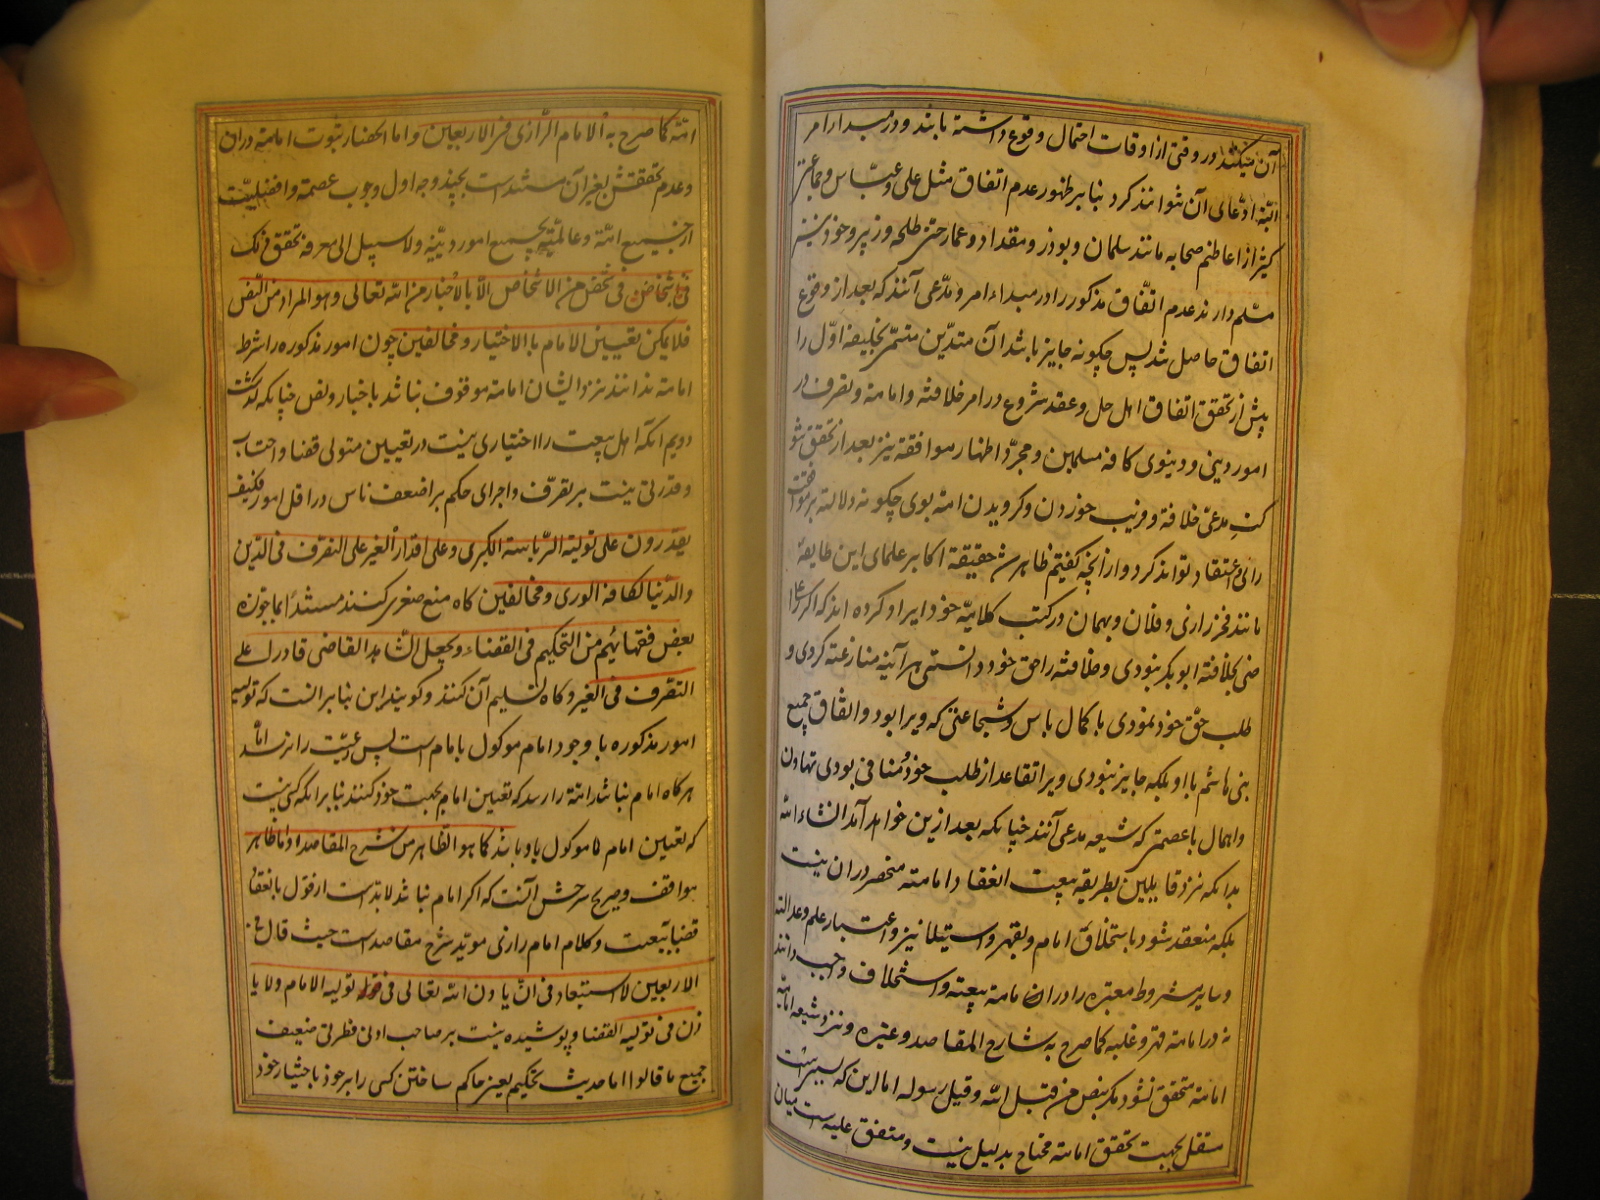 آن میکنند در وقتی از اوقات احتمال وقوع داشته باشد و در مبدا امر
البته ادعای آن نتوانند کرد بنابر ظهور عدم اتفاق مثل علی و عباس و جماعتی
کثیر از اعاظم صحابه مانند سلمان و بوذر و مقداد و عمار حتی طلحه و زبیر و خود نیز
مسلم دارند عدم اتفاق مذکور را در مبداء امر و مدعی آنند که بعد از وقوع
اتفاق حاصل شد پس چگونه جایز باشد آن متدین متسمی بخلیفه اول را
پیش از تحقق اتفاق اهل حل و عقد شروع در امر خلافة و امامة و تصرف در
امور دینی و دنیوی کافه مسلمین و مجرد اظهار موافقة نیز بعد از تحقق شو
کت مدعی خلافة و فریب خوردن و گرویدن امة بوی چگونه دلالة بر موافقت
رای و اعتقاد تواند کرد و از آنچه گفتیم ظاهر شد حقیقة اکابر علمای این طایفه
مانند فخر رازی و فلان و بهمان در کتب کلامیه خود ایراد کرده اند که اگر علی را
ضی بخلافة ابو بکر نبودی و خلافة را حق خود دانستی هر آینه منازعة کردی و
طلب حق خود نمودی با کمال باس و شجاعتی که ویرا بود و اتفاق جمیع
بنی هاشم با او بلکه جایز نبودی ویرا تقاعد از طلب حق خود منافی بودی تهاون
و اهمال با عصمتی که شیعه مدعی آنند چنانکه بعد ازین خواهد آمد انشاء الله
بدانکه نزد قایلین بطریقه بیعت انعقاد امامة منحصر در آن نیست
بلکه منعقد شود باستخلاف امام و بقهر و استیلا نیز و اعتبار علم و عدالة
و سایر شروط معتبره را در امامة ببیعة و استخلاف واجب دانند
نه در امامة قهر و غلبه کما صرح به شارح المقاصد و غیره و نزد شیعه امامیه
امامة متحقق نشود مگر بنص من قبل الله و قبل رسوله اما این که
مستقل بجهت تحقق امامة محتاج بدلیل نیست و متفق علیه است میان
ائمه کما صرح به الامام الرازی فی الاربعین و اما انحصار ثبوت امامة در آن
و عدم تحققش بغیر آن مستند است بچند وجه اول وجوب عصمة و افضلیت
از جمیع ائمة و عالمیته بجمیع امور دینیة ولا سبیل الی معرفة تحقق تلک
فی شخص من الاشخاص الا بالاخبار من الله تعالی و هو المراد من النص
فلا یمکن تعیین الامام بالاختیار و مخالفین چون امور مذکوره را شرط
امامة ندانند نزد ایشان امامة موقوف نباشد باخبار و نص چنانکه گذشت
دویم آنکه اهل بیعت را اختیاری نیست در تعیین متولی قضا و احتساب
و قدرتی نیست بر تصرف و اجرای حکم بر اضعف ناس در اقل امور فکیف
یقدرون علی تولیة الریاسة الکبری و علی اقدار الغیر علی التصرف فی الدین
و الدنیا لکافة الوری و مخالفین گاه منع صغری کنند مستندا بما جوزه
بعض فقهائهم من التحکیم فی القضاء و بجعل الشاهد القاضی قادرا علی
التصرف فی الغیر و گاه تسلیم آن کنند و گویند این بنابر انست که تولیه
امور مذکوره با وجود امام موکول بامام است پس رعیت را نرسد اما
هر گاه امام نباشد ائمة را رسد که تعیین امام بجهت خود کنند بنابر آنکه کسی نیست
که تعیین امام موکول باو باشد کما هو الظاهر من شرح المقاصد اما ظاهر
مواقف و صریح شرحش آنست که اگر امام نباشد لابد است از قول بانعقاد
قضا ببیعت و کلام امام رازی موید شرح مقاصد است حیث قال فی
الاربعین لا استبعاد فی ان یاذن الله تعالی فی تولیة الامام ولا یا
ذن فی تولیه القضا و پوشیده نیست بر صاحب ادنی فطرتی ضعیف
جمیع ما قالوا اما حدیث تحکیم یعنی حاکم ساختن کسی را بر خود باختیار خود